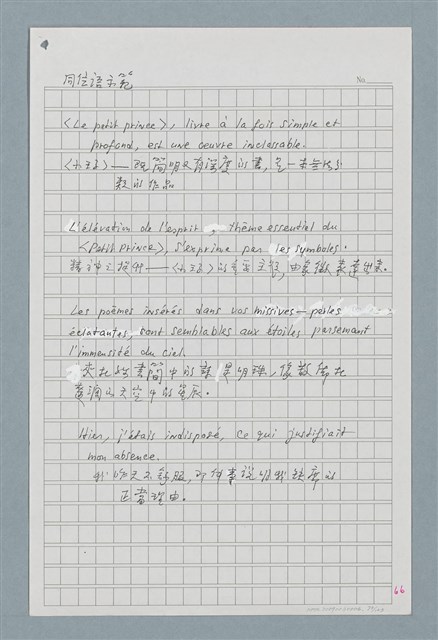 同位语示範
No.
〈Le petit prince〉, livre à la fois simple et
profond, est une œuvre inclassable.
〈小王子〉— 既简明又有深度的書,是一本無法分
類的作品
L'élévation de l'esprit, thème essentiel du
〈Petit Prince〉, s'exprime par les symboles.
精神之提昇——〈小王子〉的主要主題,由象徵表達出來。
Les poèmes insérés dans vos missives — perles
éclatantes, sont semblables aux étoiles parsemant
l'immensité du ciel.
夾在 書简中的詩 是明珠,像散佈在
遼闊的天空中的星辰。
Hier, j'étais indisposé, ce qui justifiait
mon absence.
我昨天不舒服,那件事說明我缺席的
正當理由。
66